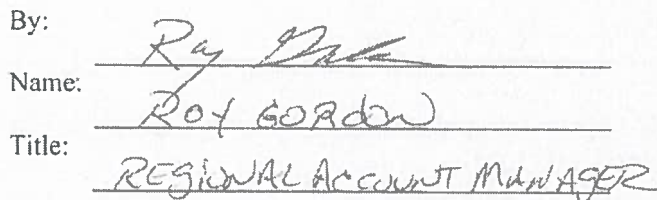 By:
Roy
Name:
ROY GORDON
Title:
REGIONAL ACCOUNT MANAGER